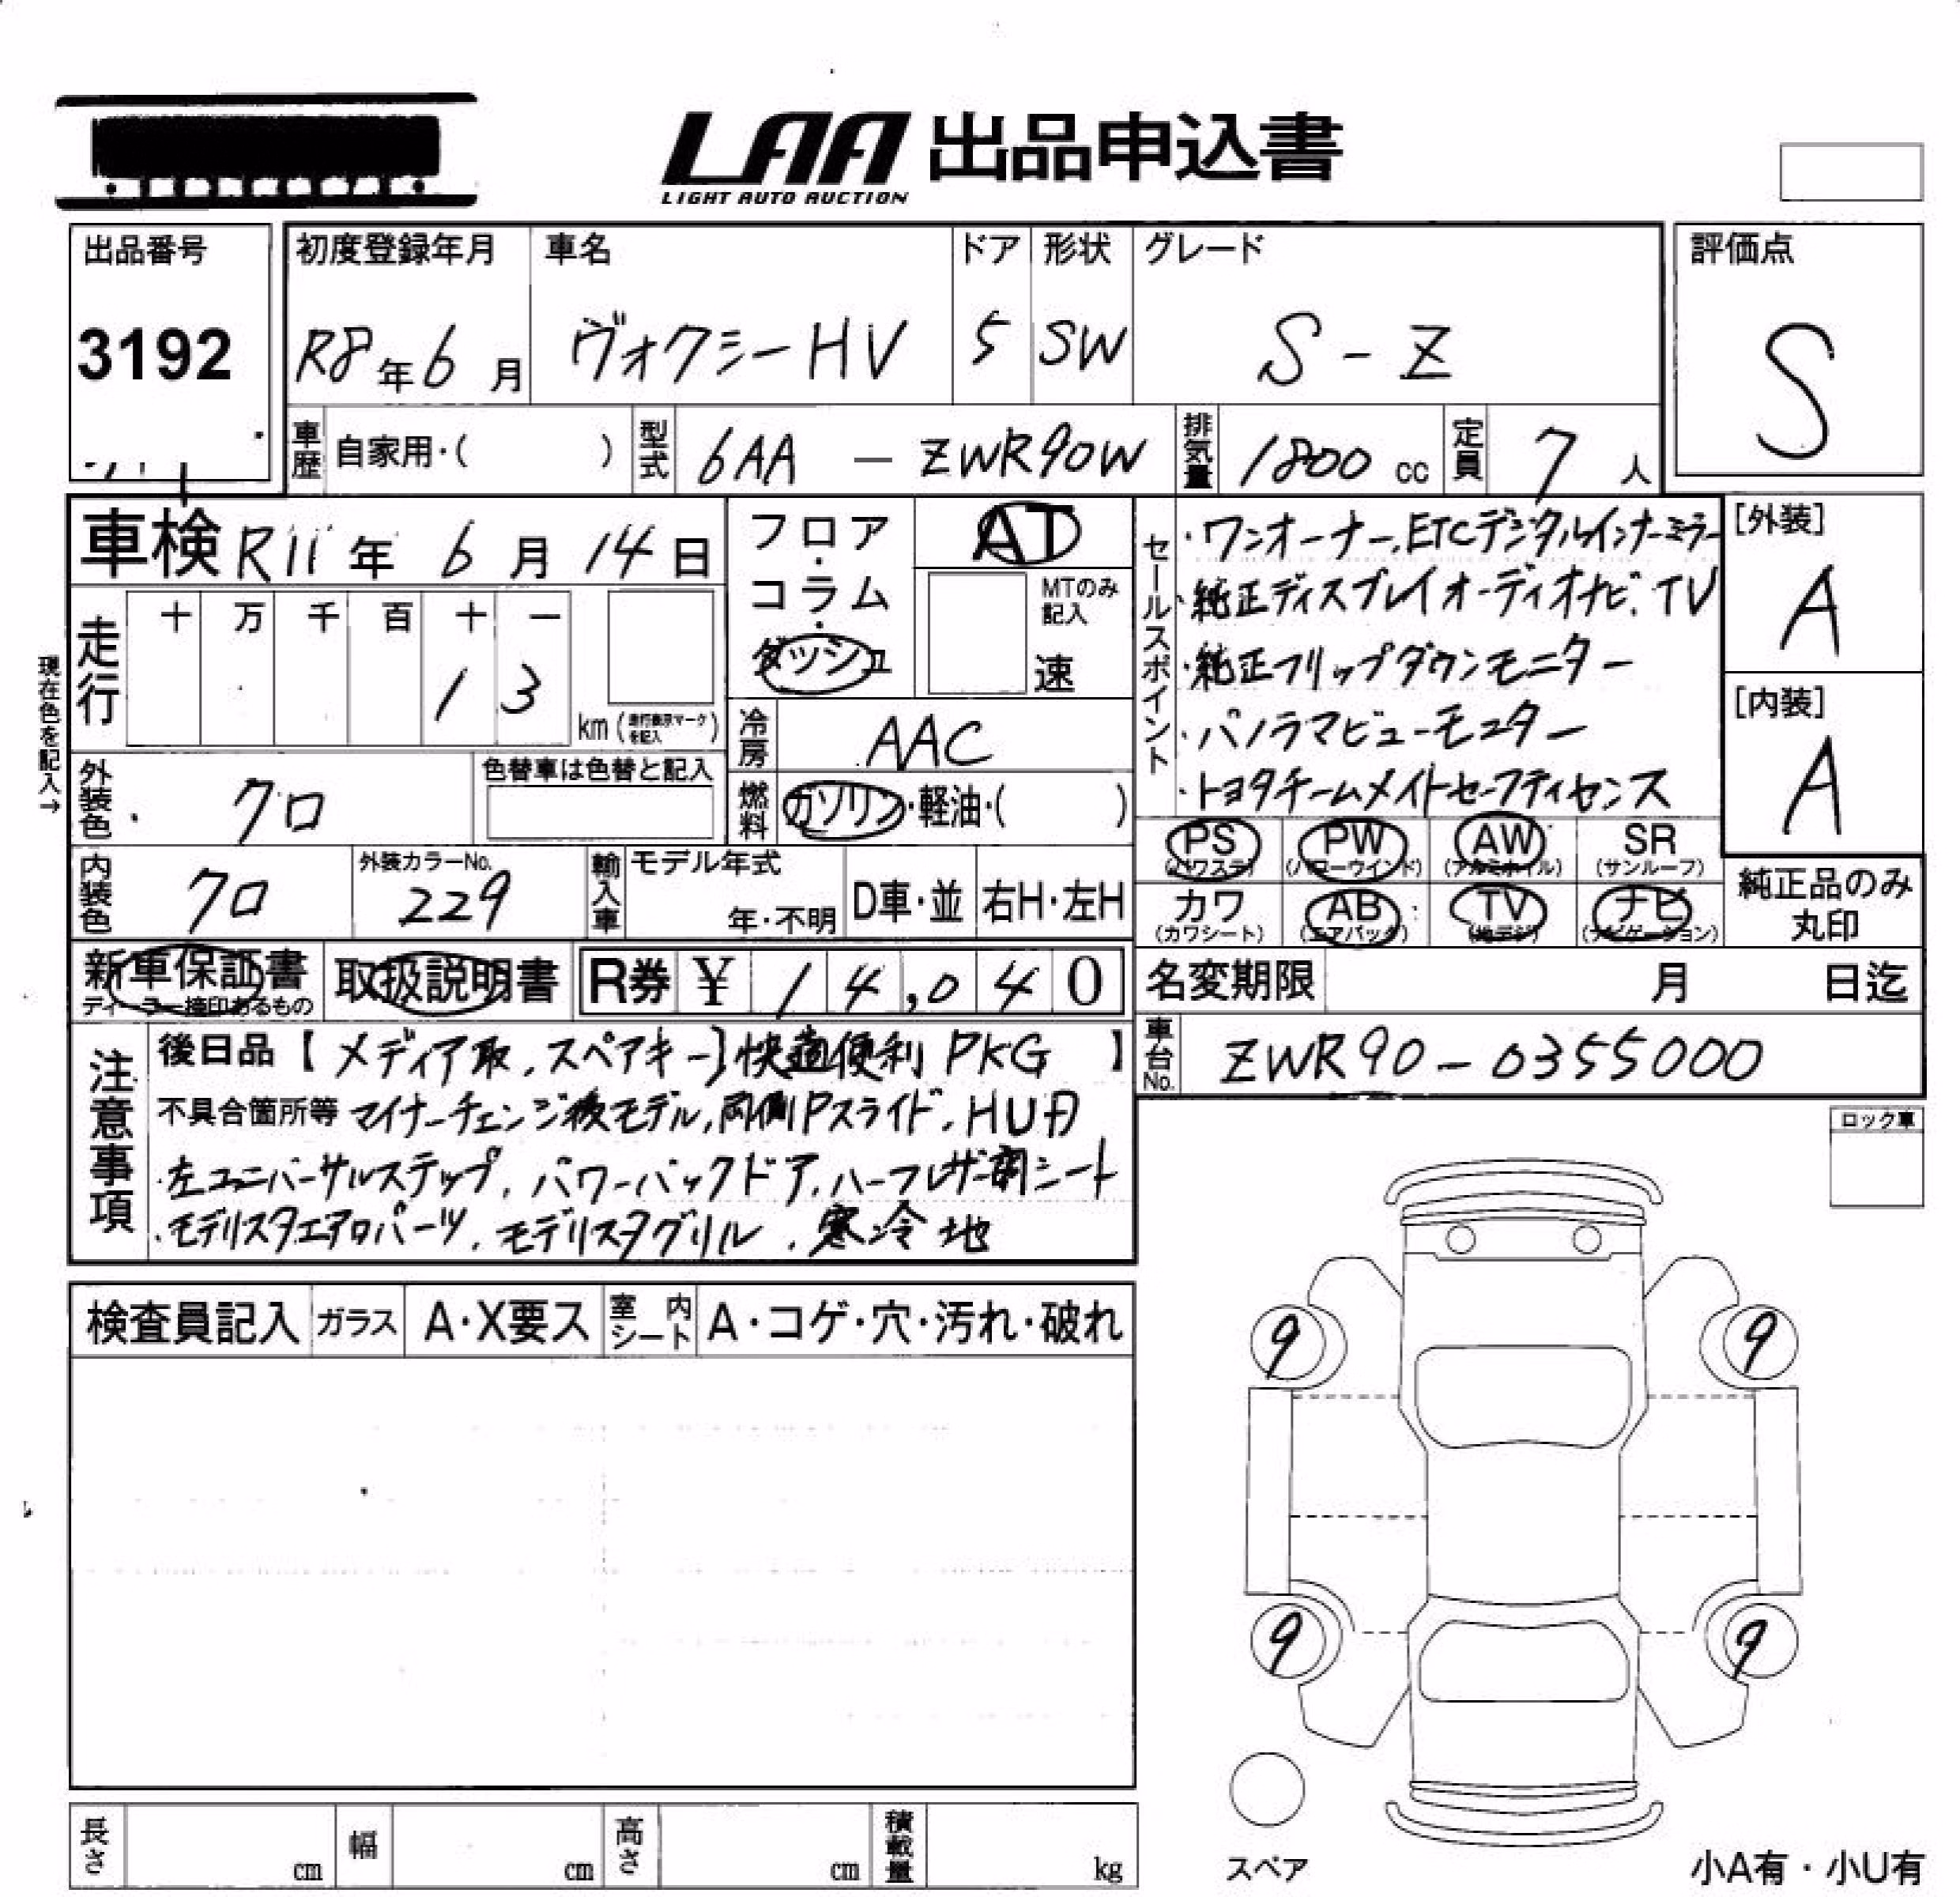 LAA 出品申込書
LIGHT AUTO AUCTION
出品番号
3192
初度登録年月
R8年6月
車名
ヴォクシーHV
ドア
5
形状
SW
グレード
S-Z
評価点
S
車歴 自家用・( )
型式 6AA - ZWR90W
排気量 1800 cc
定員 7 人
車検 R11年 6月 14日
フロア・コラム・ダッシュ
AT
MTのみ記入
速
セールスポイント
・ワンオーナー、ETCデジタルインナーミラー
・純正ディスプレイオーディオナビ、TV
・純正フリップダウンモニター
・パノラマビューモニター
・トヨタチームメイトセーフティセンス
[外装]
A
[内装]
A
現在色を記入→
走行 十 万 千 百 十 一
1 3
km (走行表示マークを記入)
冷房 AAC
燃料 ガソリン・軽油・( )
外装色 クロ
色替車は色替と記入
PS (パワステ) PW (パワーウインド) AW (アルミホイル) SR (サンルーフ)
カワ (カワシート) AB (エアバック) TV (地デジ) ナビ (ナビゲーション)
純正品のみ丸印
内装色 クロ
外装カラーNo. 229
輸入車 モデル年式 年・不明 D車・並 右H・左H
新車保証書
ディーラー捺印あるもの
取扱説明書
R券 ¥ 14,040
名変期限 月 日迄
車台No. ZWR90-0355000
注意事項
後日品【メディア取、スペアキー】快適便利PKG 】
不具合箇所等 マイナーチェンジ後モデル、両側Pスライド、HUD
・左ユニバーサルステップ、パワーバックドア、ハーフレザー調シート
・モデリスタエアロパーツ、モデリスタグリル、寒冷地
ロック車
検査員記入 ガラス A・X要ス 室内シート A・コゲ・穴・汚れ・破れ
9 9
9 9
スペア
長さ cm 幅 cm 高さ cm 積載量 kg
小A有・小U有